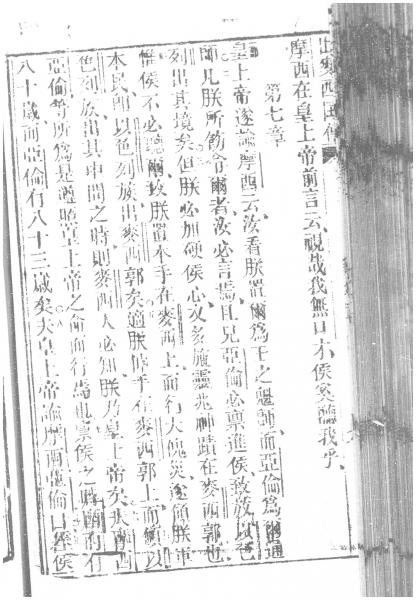 出麥西國傳
摩西在皇上帝前言云、視哉我無口才侯奚聽我乎、
第七章
皇上帝遂諭摩西云、汝看朕置爾爲王之魁師、而亞倫爲爾通
師、凡朕所飭令爾者、汝必言焉、且兄亞倫必稟進侯、致放以色
列出其境矣、但朕必加硬侯心、又多施靈兆神蹟在麥西郭也、
惟侯不必聽爾、致朕置本手在麥西上、而行大愧災、遂領朕軍
本民、卽以色列族出麥西郭矣、適朕伸手在麥西郭上、而領以
色列族出其中間之時、則麥西人必知朕乃皇上帝矣、夫摩西
亞倫等所爲是遵照皇上帝之命而行焉、也稟侯之時、摩西有
八十歲、而亞倫有八十三歲矣、夫皇上帝諭摩西亞倫曰、若侯